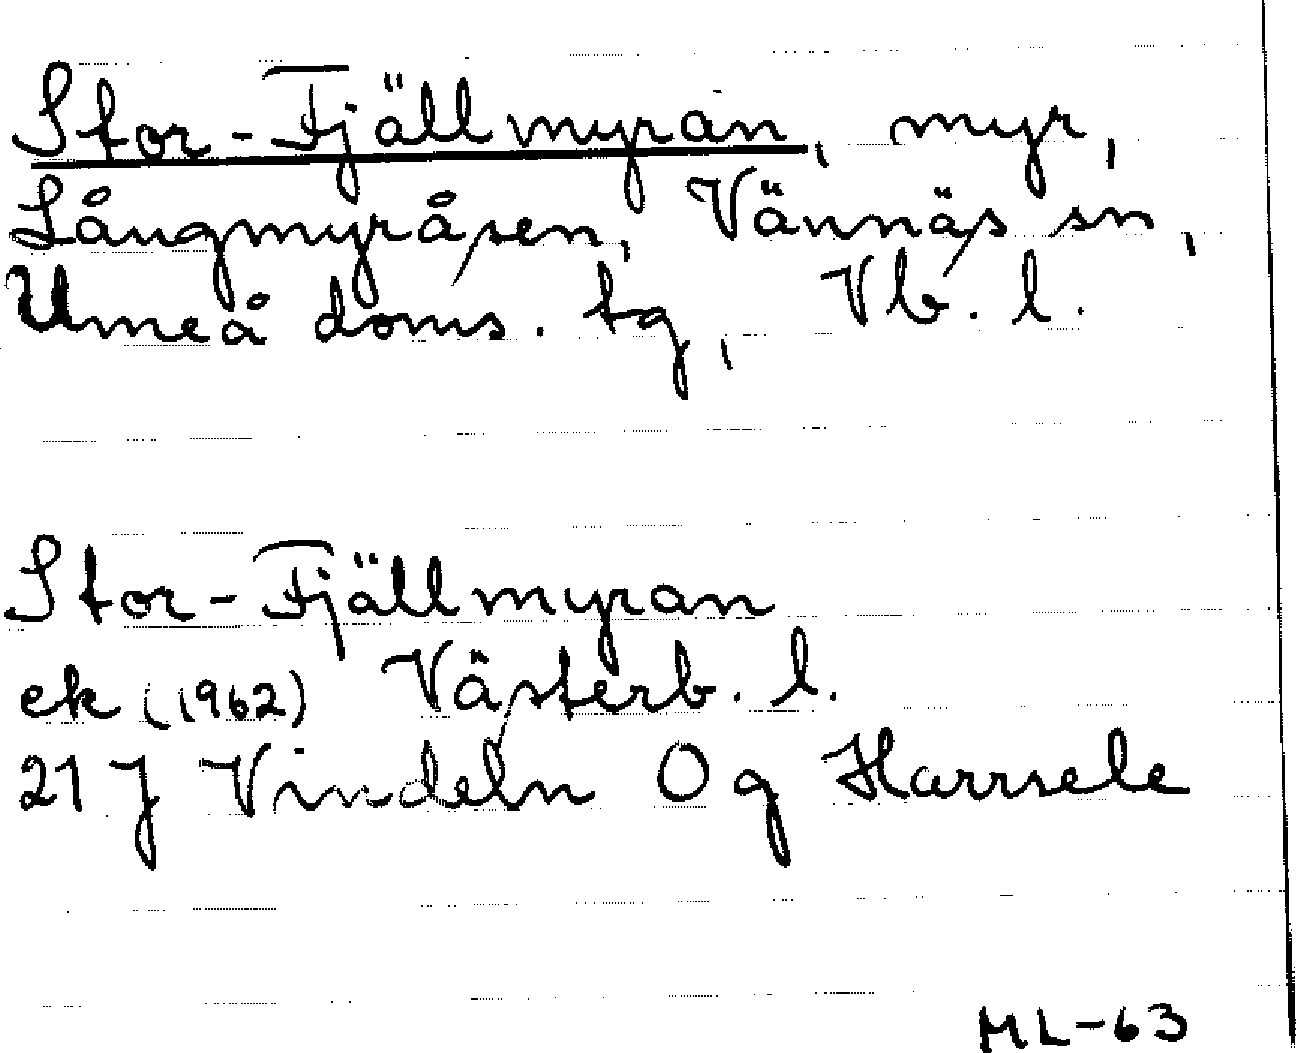 Stor-Fjällmyran, myr,
Långmyråsen, Vännäs sn,
Umeå doms. tg, Vb. l.
Stor-Fjällmyran
ek (1962) Västerb. l.
21 J Vindeln 0 g Harrsele
ML-63